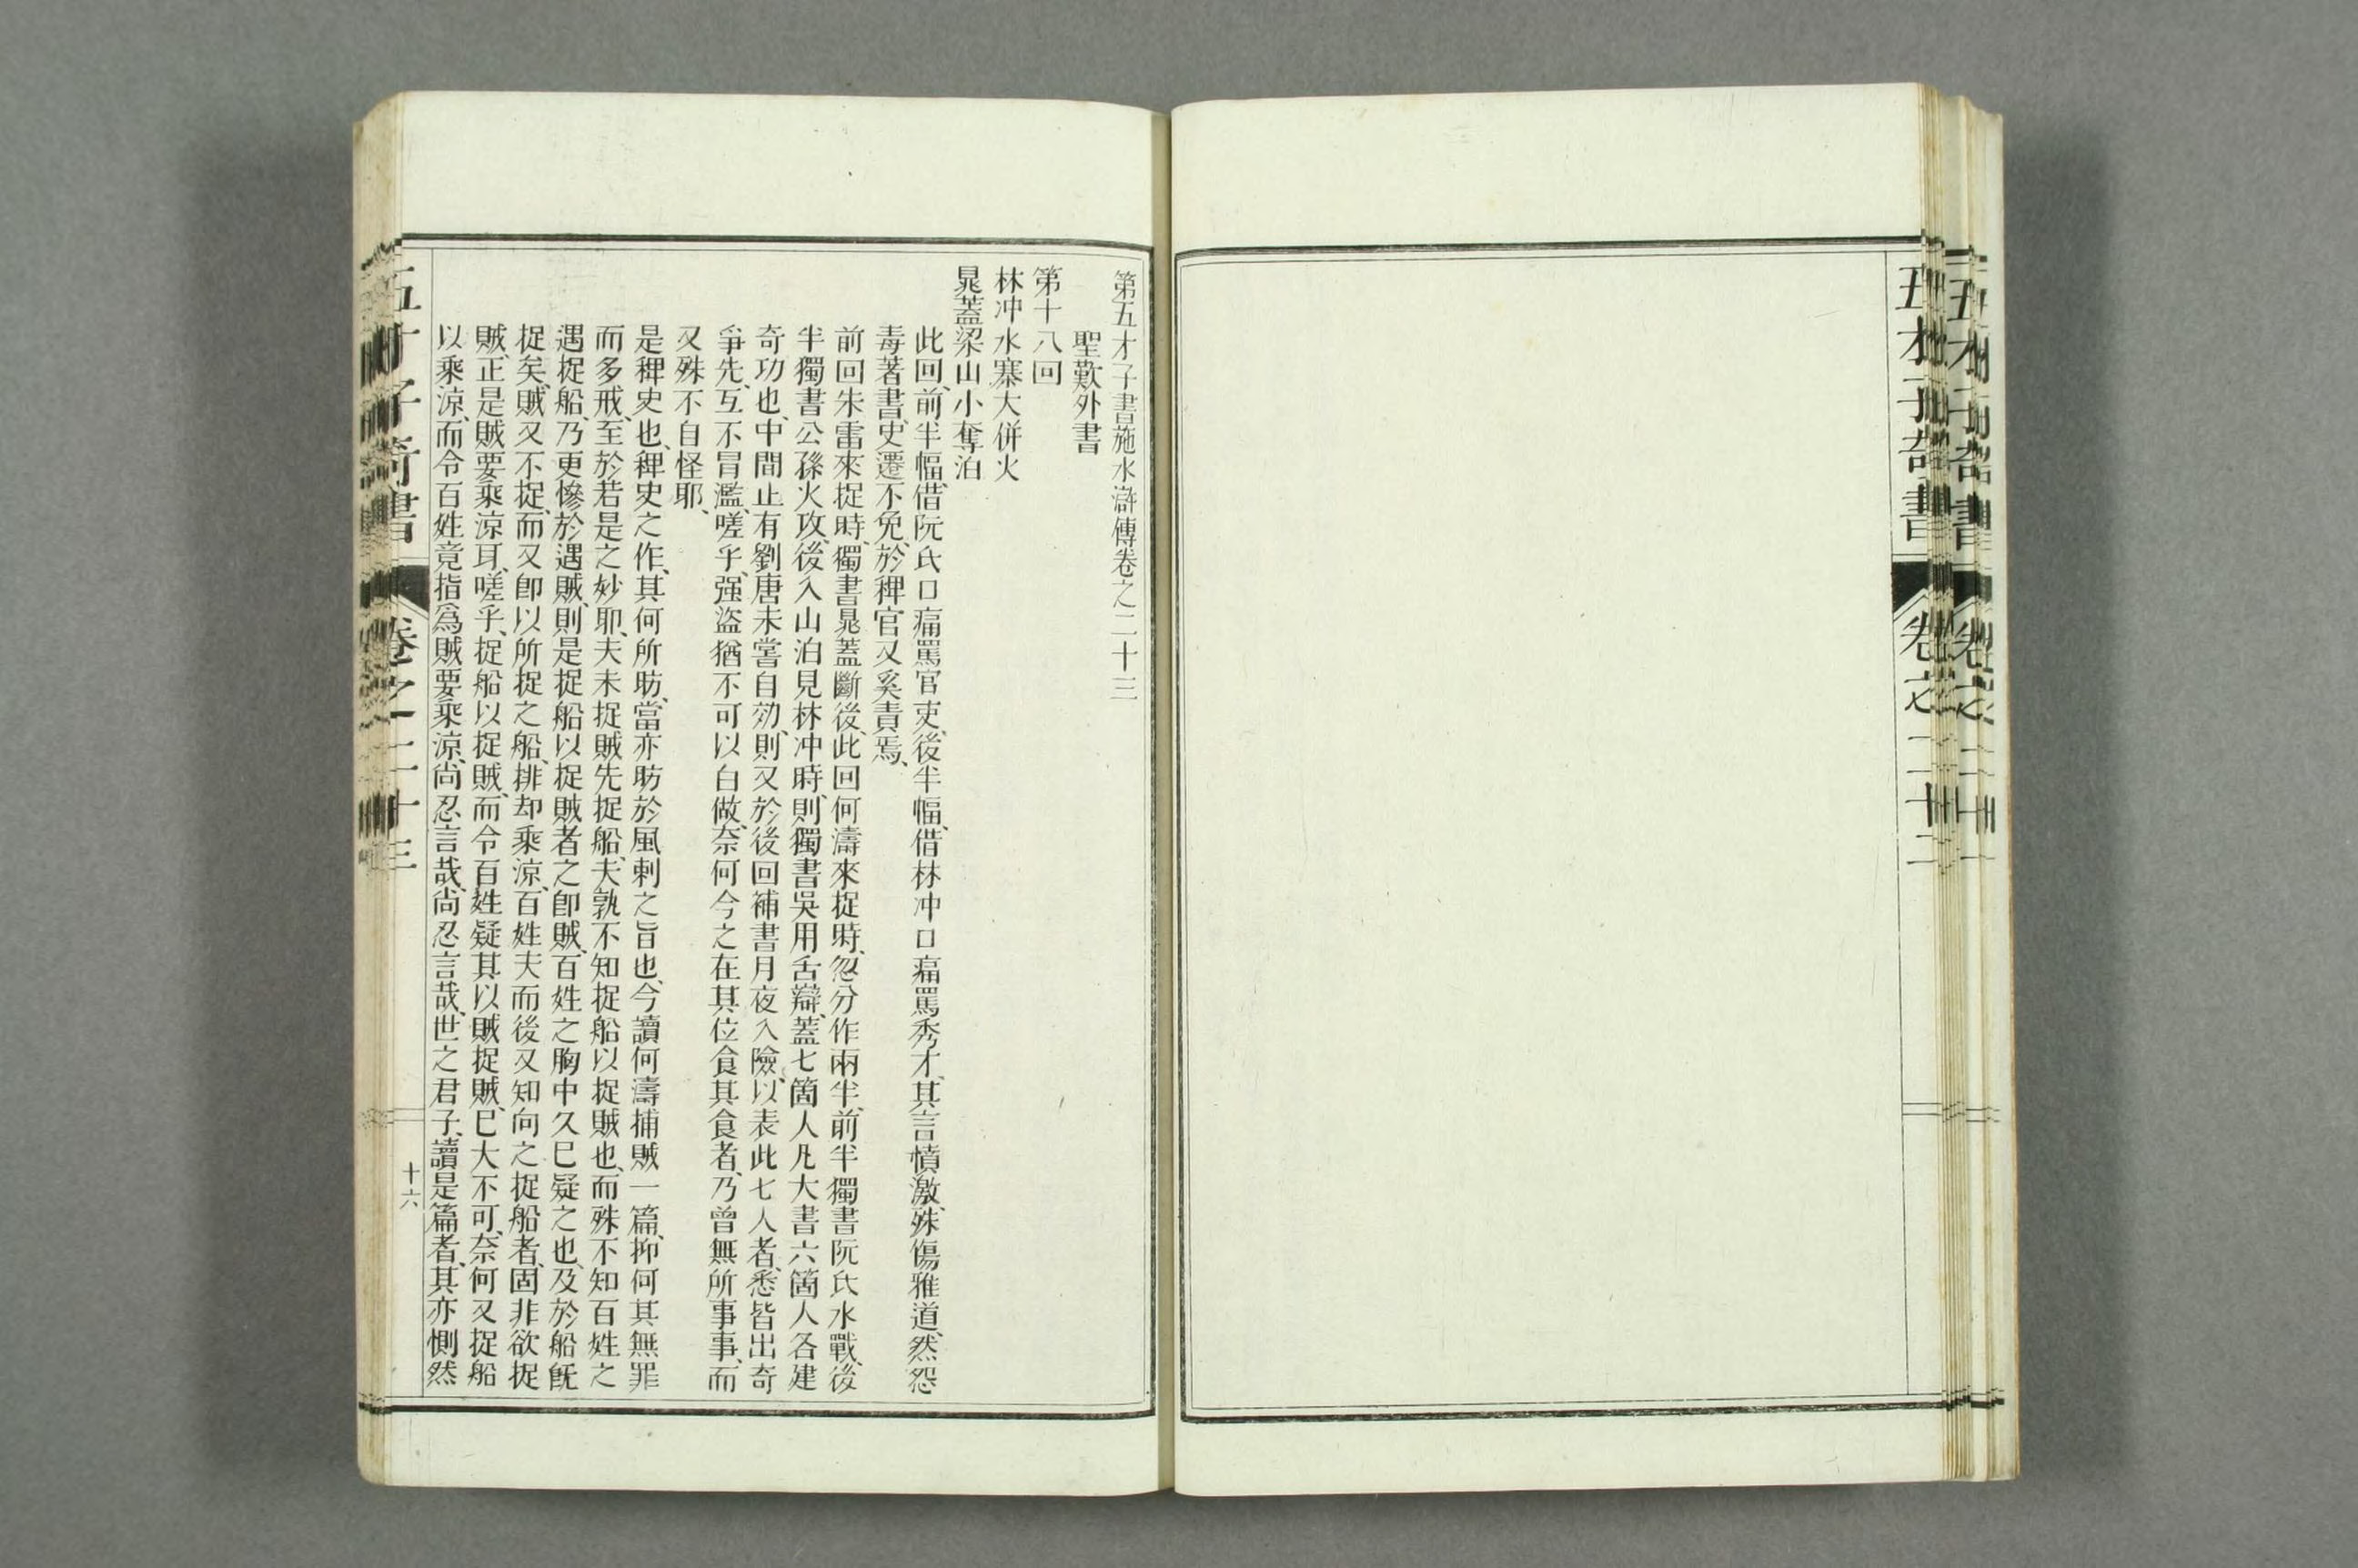 第五才子書施水滸傳卷之二十三
聖歎外書
第十八回
林冲水寨大併火
晁蓋梁山小奪泊
此回、前半幅、借阮氏口痛罵官吏、後半幅、借林冲口痛罵秀才、其言憤激、殊傷雅道、然怨
毒著書、史遷不免、於稗官又奚責焉、
前回朱雷來捉時、獨書晁蓋斷後、此回何濤來捉時、忽分作兩半、前半獨書阮氏水戰、後
半獨書公孫火攻、後入山泊見林冲時、則獨書吳用舌辯、蓋七箇人凡大書六箇人各建
奇功也、中間止有劉唐未嘗自効、則又於後回補書月夜入險、以表此七人者、悉皆出奇
爭先、互不冒濫、嗟乎、强盜猶不可以白做、奈何今之在其位食其食者、乃曾無所事事、而
又殊不自怪耶、
是稗史也、稗史之作、其何所昉、當亦昉於風刺之旨也、今讀何濤捕賊一篇、抑何其無罪
而多戒、至於若是之妙耶、夫未捉賊先捉船、夫孰不知捉船以捉賊也、而殊不知百姓之
遇捉船、乃更慘於遇賊、則是捉船以捉賊者之卽賊、百姓之胸中久巳疑之也、及於船旣
捉矣、賊又不捉、而又卽以所捉之船、排却乘涼、百姓夫而後又知向之捉船者、固非欲捉
賊、正是賊要乘涼耳、嗟乎、捉船以捉賊、而令百姓疑其以賊捉賊、巳大不可、奈何又捉船
以乘涼、而令百姓竟指爲賊要乘涼、尚忍言哉、尚忍言哉、世之君子、讀是篇者、其亦惻然
五才子奇書
卷之二十三
十六